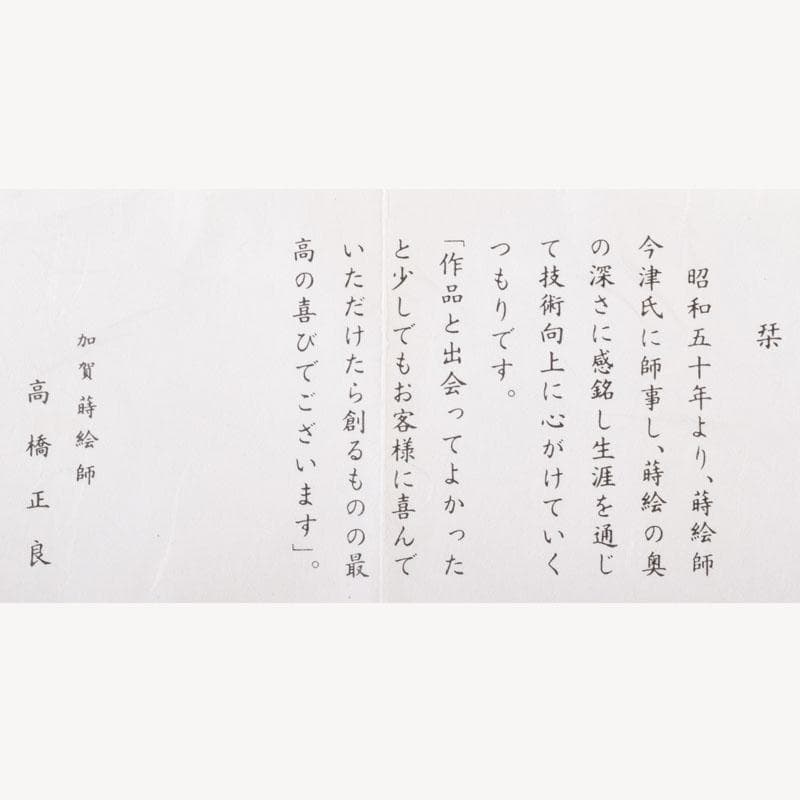 栞
昭和五十年より、蒔絵師
今津氏に師事し、蒔絵の奥
の深さに感銘し生涯を通じ
て技術向上に心がけていく
つもりです。
「作品と出会ってよかった
と少しでもお客様に喜んで
いただけたら創るものの最
高の喜びでございます」。
加賀蒔絵師
高橋正良